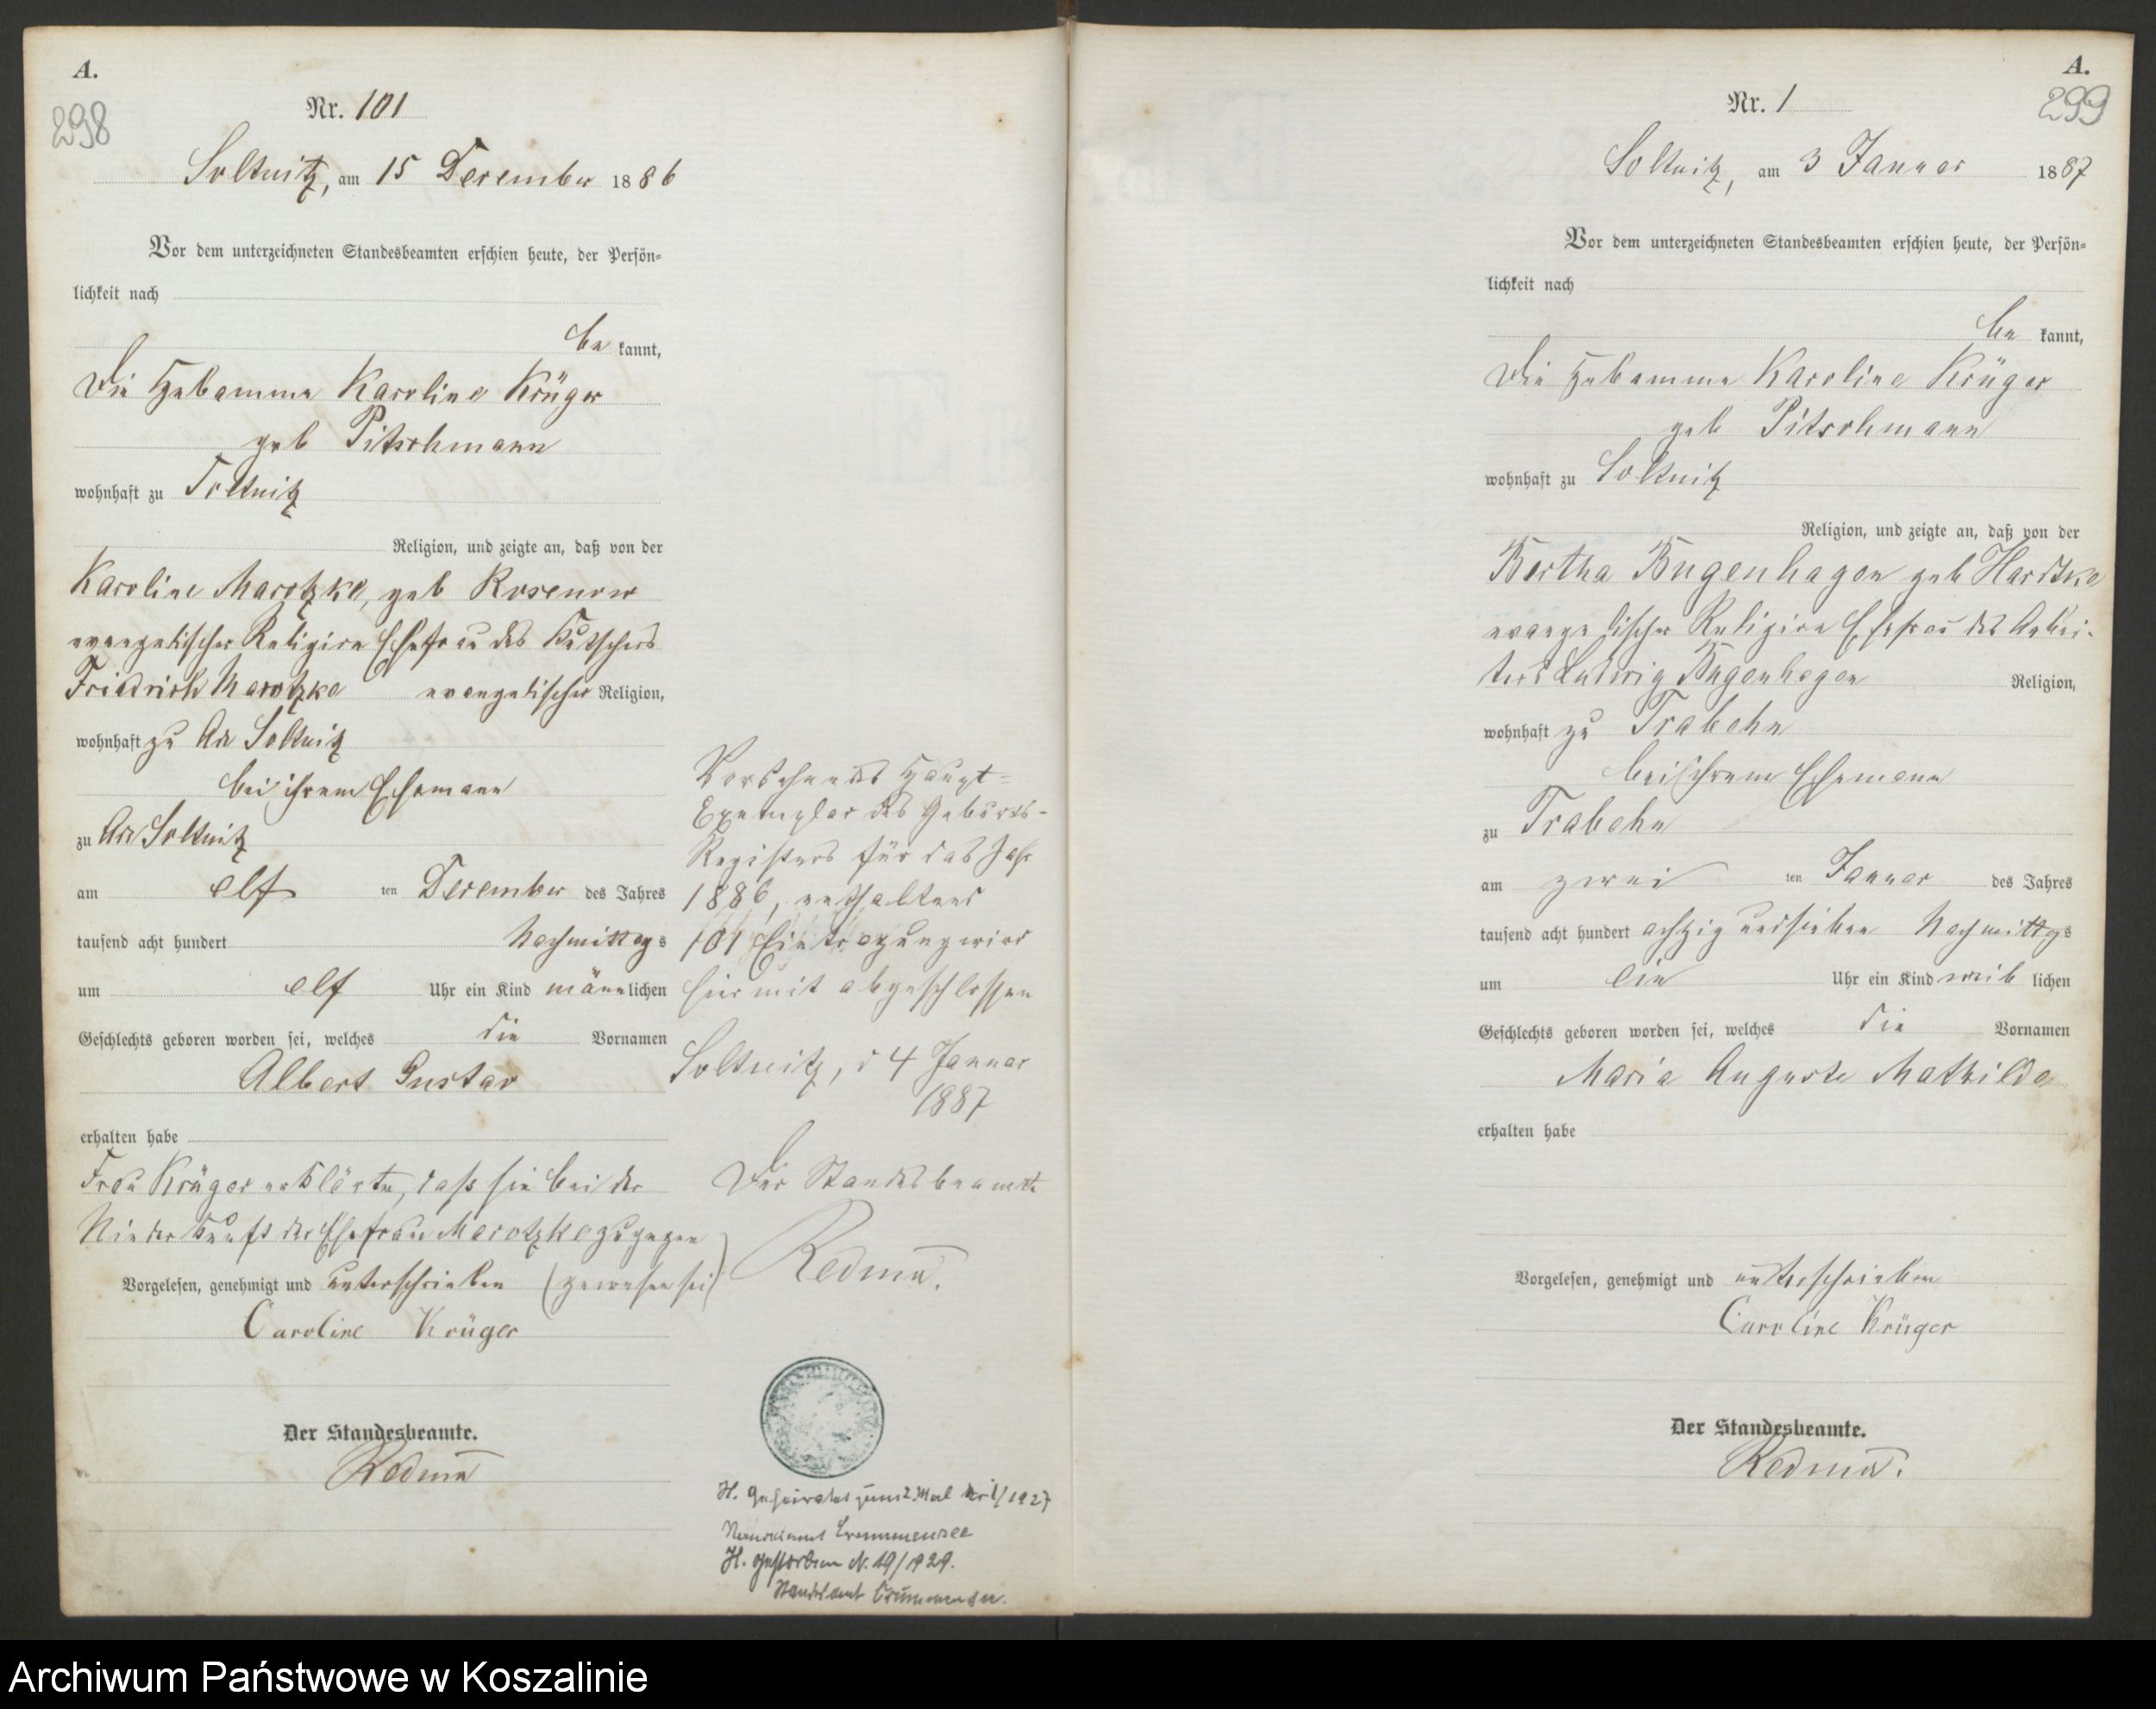 A.
298
Nr. 101
Soltnitz, am 15 December 1886
Vor dem unterzeichneten Standesbeamten erschien heute, der Persön-
lichkeit nach
be kannt,
Die Hebamme Karoline Krüger
geb Pitschmann
wohnhaft zu Soltnitz
Religion, und zeigte an, daß von der
Karoline Marotzke, geb Rosenow
evangelischer Religion Ehefrau des Kutschers
Friedrich Marotzke evangelischer Religion,
wohnhaft zu Soltnitz
bei ihrem Ehemann
zu Soltnitz
am elf ten December des Jahres
tausend acht hundert Nachmittags
um elf Uhr ein Kind männlichen
Geschlechts geboren worden sei, welches die Vornamen
Albert Gustav
erhalten habe
Frau Krüger erklärte, daß sie bei der
Niederkunft der Ehefrau Marotzke zugegen
Vorgelesen, genehmigt und unterschrieben (gewesen sei)
Caroline Krüger
Der Standesbeamte.
Redmn
Vorstehendes Haupt-
Exemplar des Geburts-
Registers für das Jahr
1886, enthaltend
101 Eintragung wird
hiermit abgeschlossen
Soltnitz, d 4 Januar
1887
Der Standesbeamte
Redmn.
H. geheiratet zum 2. Mal Nr 1/1927
Standesamt
H. gestorben N. 19/1929.
Standesamt
A.
299
Nr. 1
Soltnitz, am 3 Januar 1887
Vor dem unterzeichneten Standesbeamten erschien heute, der Persön-
lichkeit nach
be kannt,
Die Hebamme Karoline Krüger
geb Pitschmann
wohnhaft zu Soltnitz
Religion, und zeigte an, daß von der
Bertha Bugenhagen geb Hardtke
evangelischer Religion Ehefrau des Arbei-
ters Ludwig Bugenhagen Religion,
wohnhaft zu Trabehn
bei ihrem Ehemann
zu Trabehn
am zwei ten Januar des Jahres
tausend acht hundert achtzig und sieben Nachmittags
um ein Uhr ein Kind weib lichen
Geschlechts geboren worden sei, welches die Vornamen
Maria Auguste Mathilde
erhalten habe
Vorgelesen, genehmigt und unterschrieben
Caroline Krüger
Der Standesbeamte.
Redmn.
Archiwum Państwowe w Koszalinie